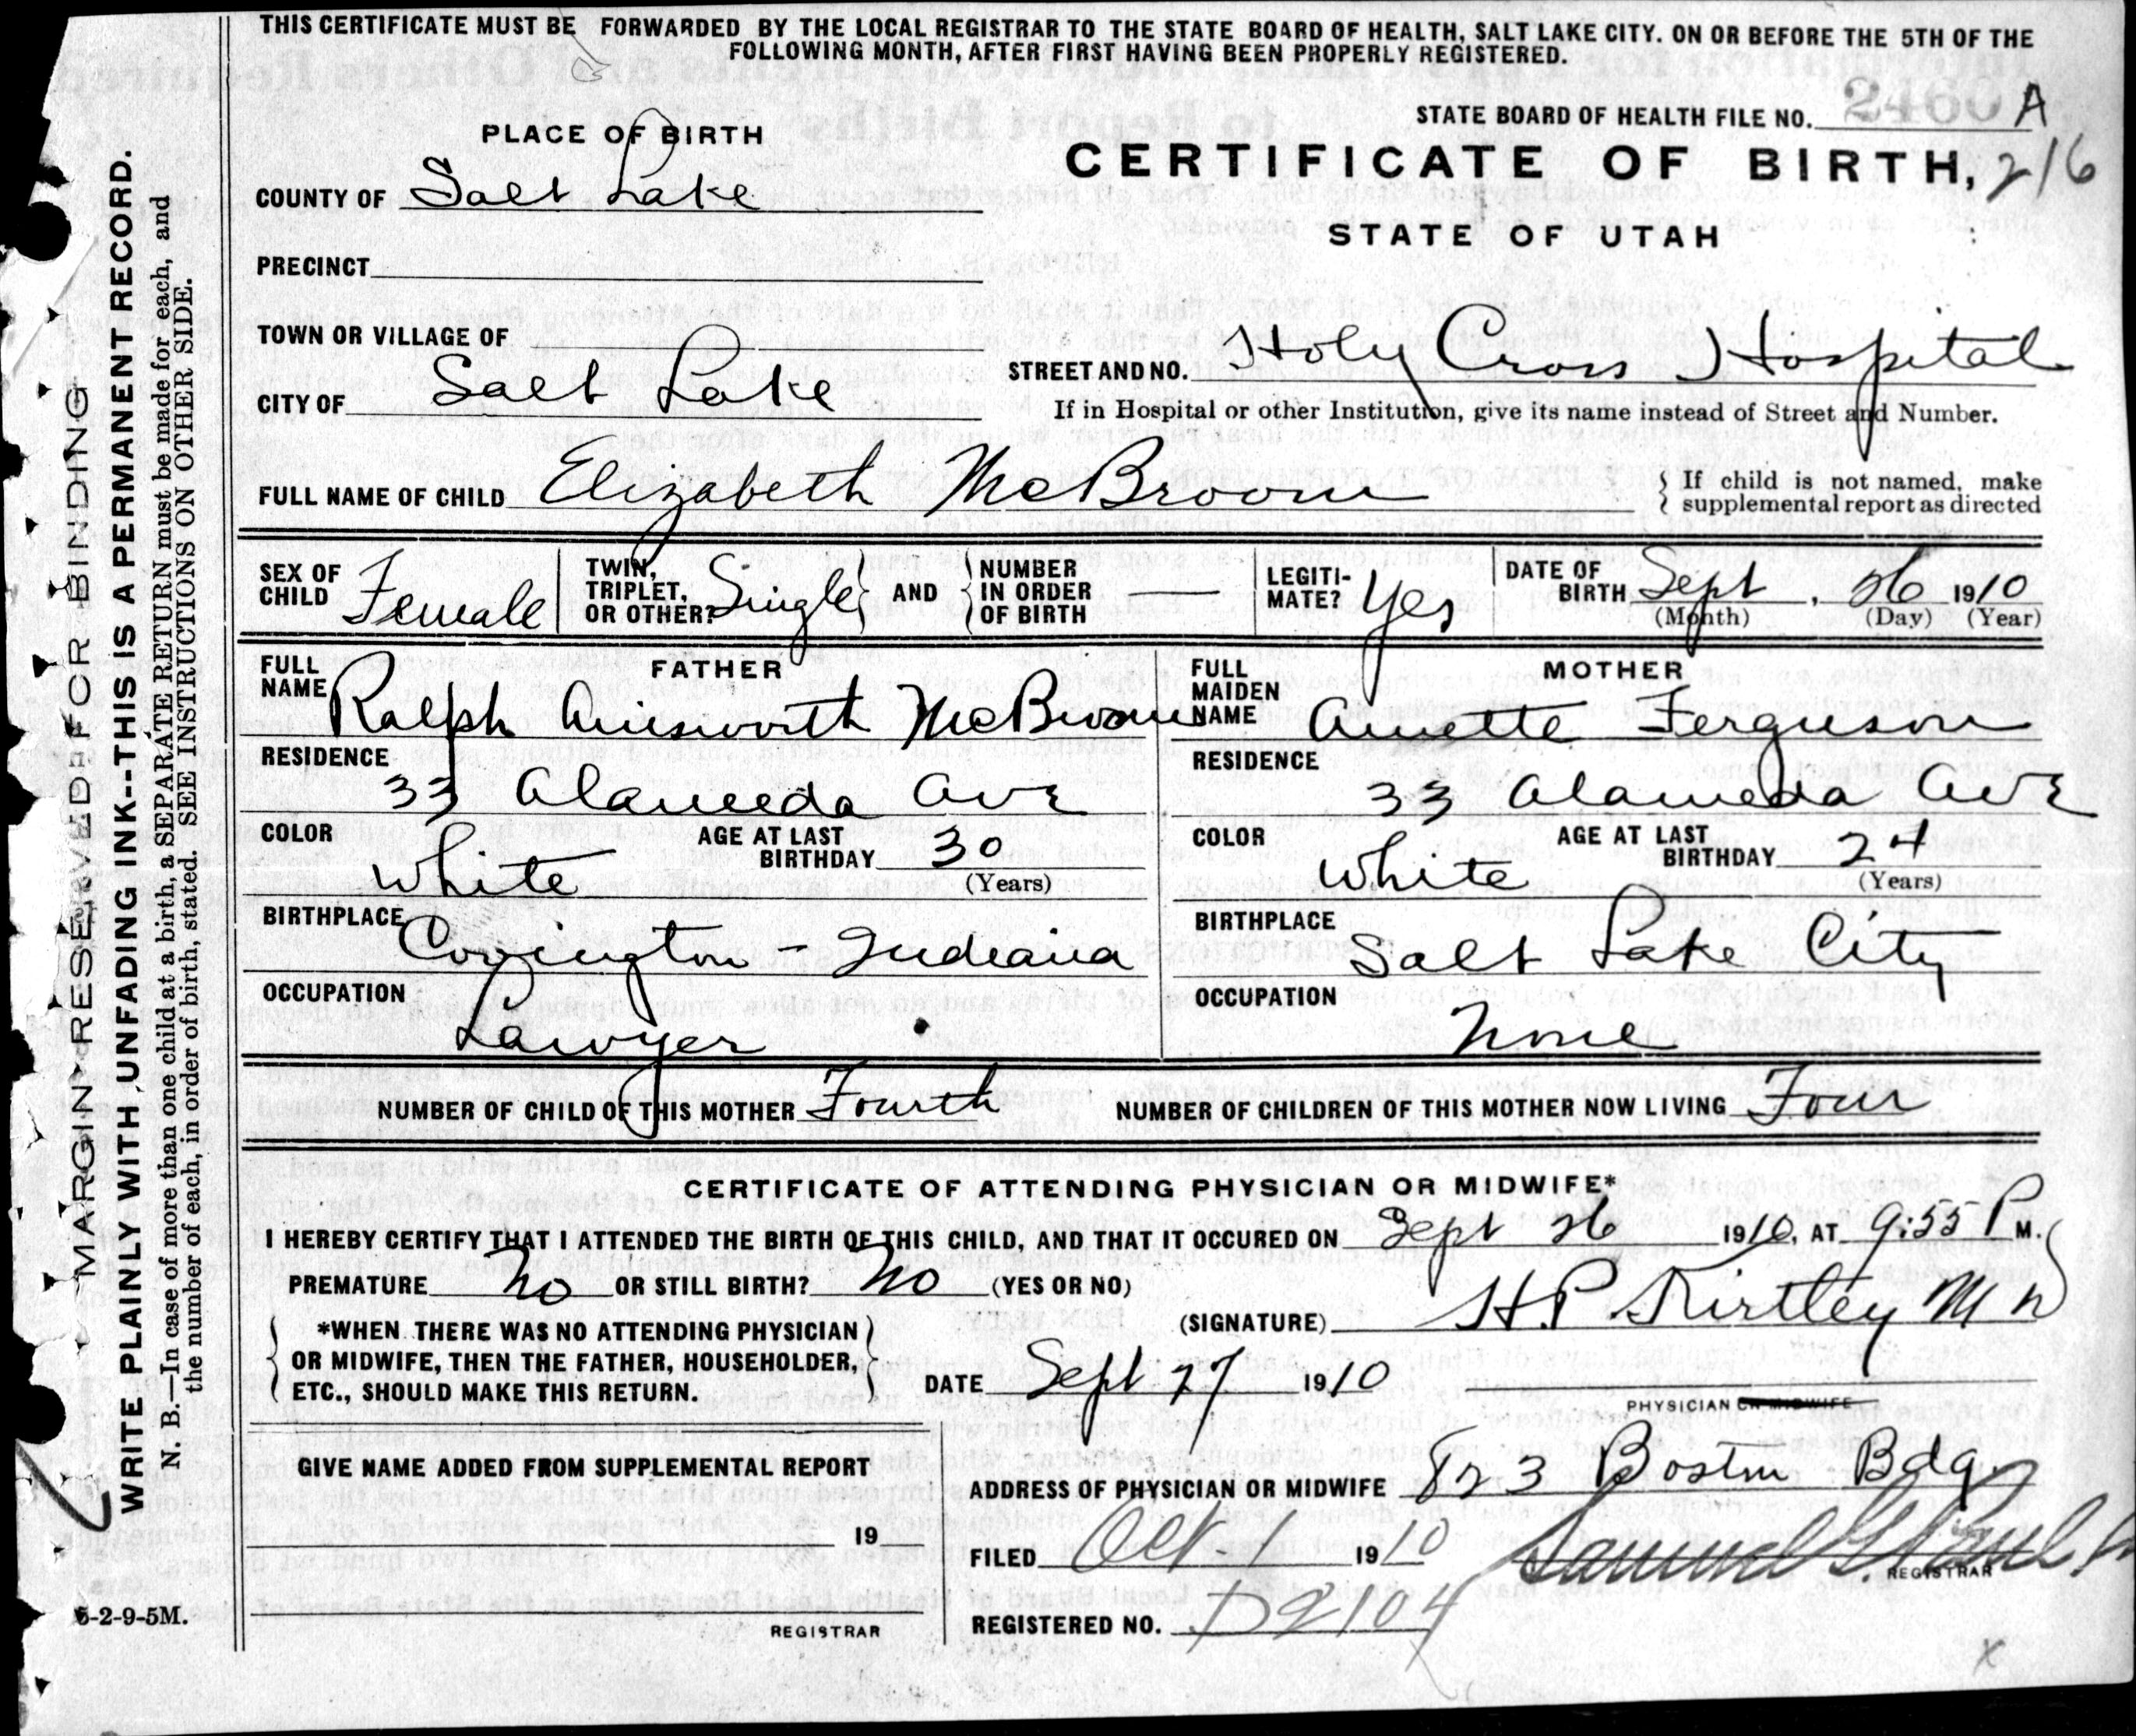 THIS CERTIFICATE MUST BE FORWARDED BY THE LOCAL REGISTRAR TO THE STATE BOARD OF HEALTH, SALT LAKE CITY. ON OR BEFORE THE 5TH OF THE
FOLLOWING MONTH, AFTER FIRST HAVING BEEN PROPERLY REGISTERED.
STATE BOARD OF HEALTH FILE NO. 2460 A
PLACE OF BIRTH
CERTIFICATE OF BIRTH, 216
COUNTY OF Salt Lake
STATE OF UTAH
PRECINCT
TOWN OR VILLAGE OF
STREET AND NO. Holy Cross Hospital
CITY OF Salt Lake
If in Hospital or other Institution, give its name instead of Street and Number.
FULL NAME OF CHILD Elizabeth McBroom
{ If child is not named, make
supplemental report as directed
SEX OF CHILD Female
TWIN, TRIPLET, OR OTHER? Single } AND { NUMBER IN ORDER OF BIRTH —
LEGITI-MATE? Yes
DATE OF BIRTH Sept, 26 1910
(Month) (Day) (Year)
FATHER
FULL NAME Ralph Ainsworth McBroom
RESIDENCE
33 Alameda Ave
COLOR White
AGE AT LAST BIRTHDAY 30
(Years)
BIRTHPLACE
Covington - Indiana
OCCUPATION
Lawyer
MOTHER
FULL MAIDEN NAME Annette Ferguson
RESIDENCE
33 Alameda Ave
COLOR White
AGE AT LAST BIRTHDAY 24
(Years)
BIRTHPLACE
Salt Lake City
OCCUPATION
None
NUMBER OF CHILD OF THIS MOTHER Fourth NUMBER OF CHILDREN OF THIS MOTHER NOW LIVING Four
CERTIFICATE OF ATTENDING PHYSICIAN OR MIDWIFE*
I HEREBY CERTIFY THAT I ATTENDED THE BIRTH OF THIS CHILD, AND THAT IT OCCURED ON Sept 26 1910, AT 9:55 P M.
PREMATURE No OR STILL BIRTH? No (YES OR NO)
(SIGNATURE) H.P. Kirtley M D
{ *WHEN THERE WAS NO ATTENDING PHYSICIAN
OR MIDWIFE, THEN THE FATHER, HOUSEHOLDER,
ETC., SHOULD MAKE THIS RETURN. }
DATE Sept 27 1910
PHYSICIAN OR MIDWIFE
GIVE NAME ADDED FROM SUPPLEMENTAL REPORT
19
REGISTRAR
ADDRESS OF PHYSICIAN OR MIDWIFE 823 Boston Bdg.
FILED Oct 1 1910 Samuel G. Paul
REGISTRAR
REGISTERED NO. D2104
5-2-9-5M.
MARGIN RESERVED FOR BINDING
WRITE PLAINLY WITH UNFADING INK--THIS IS A PERMANENT RECORD.
N. B.—In case of more than one child at a birth, a SEPARATE RETURN must be made for each, and
the number of each, in order of birth, stated. SEE INSTRUCTIONS ON OTHER SIDE.